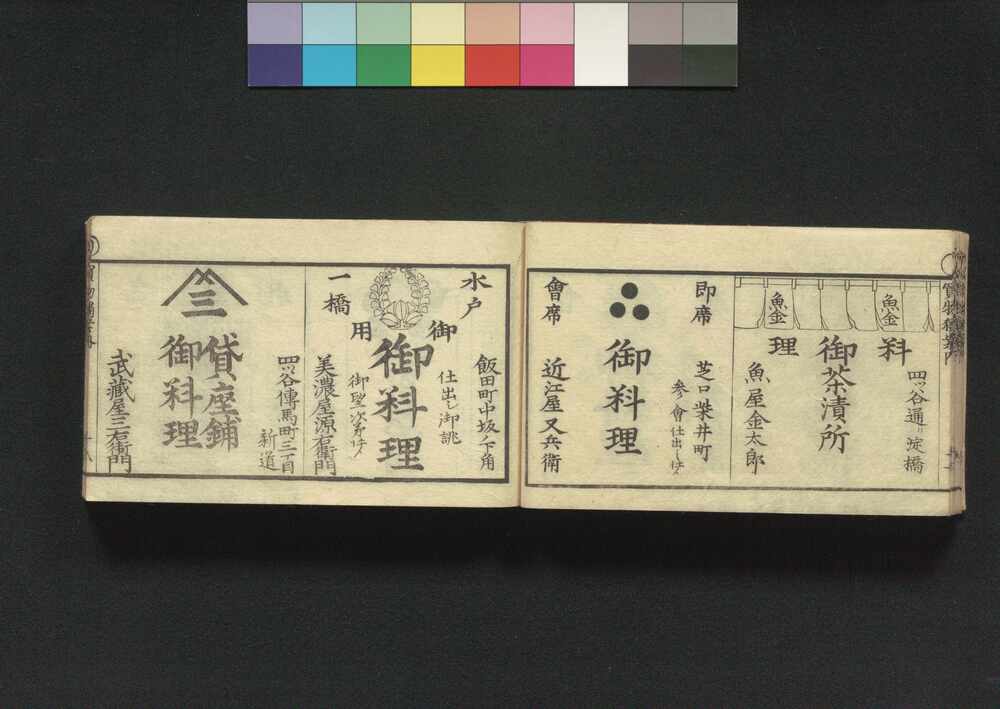 魚金
魚金
料理
御茶漬所
四ッ谷通り淀橋
魚屋金太郎
即席
會席
御料理
芝口柴井町
近江屋又兵衛
水戸
一橋
御用
御料理
飯田町中坂下角
仕出し御誂
御望次第
美濃屋源右衛門
三
貸座鋪
御料理
四ッ谷傳馬町三丁目
新道
武藏屋三右衛門